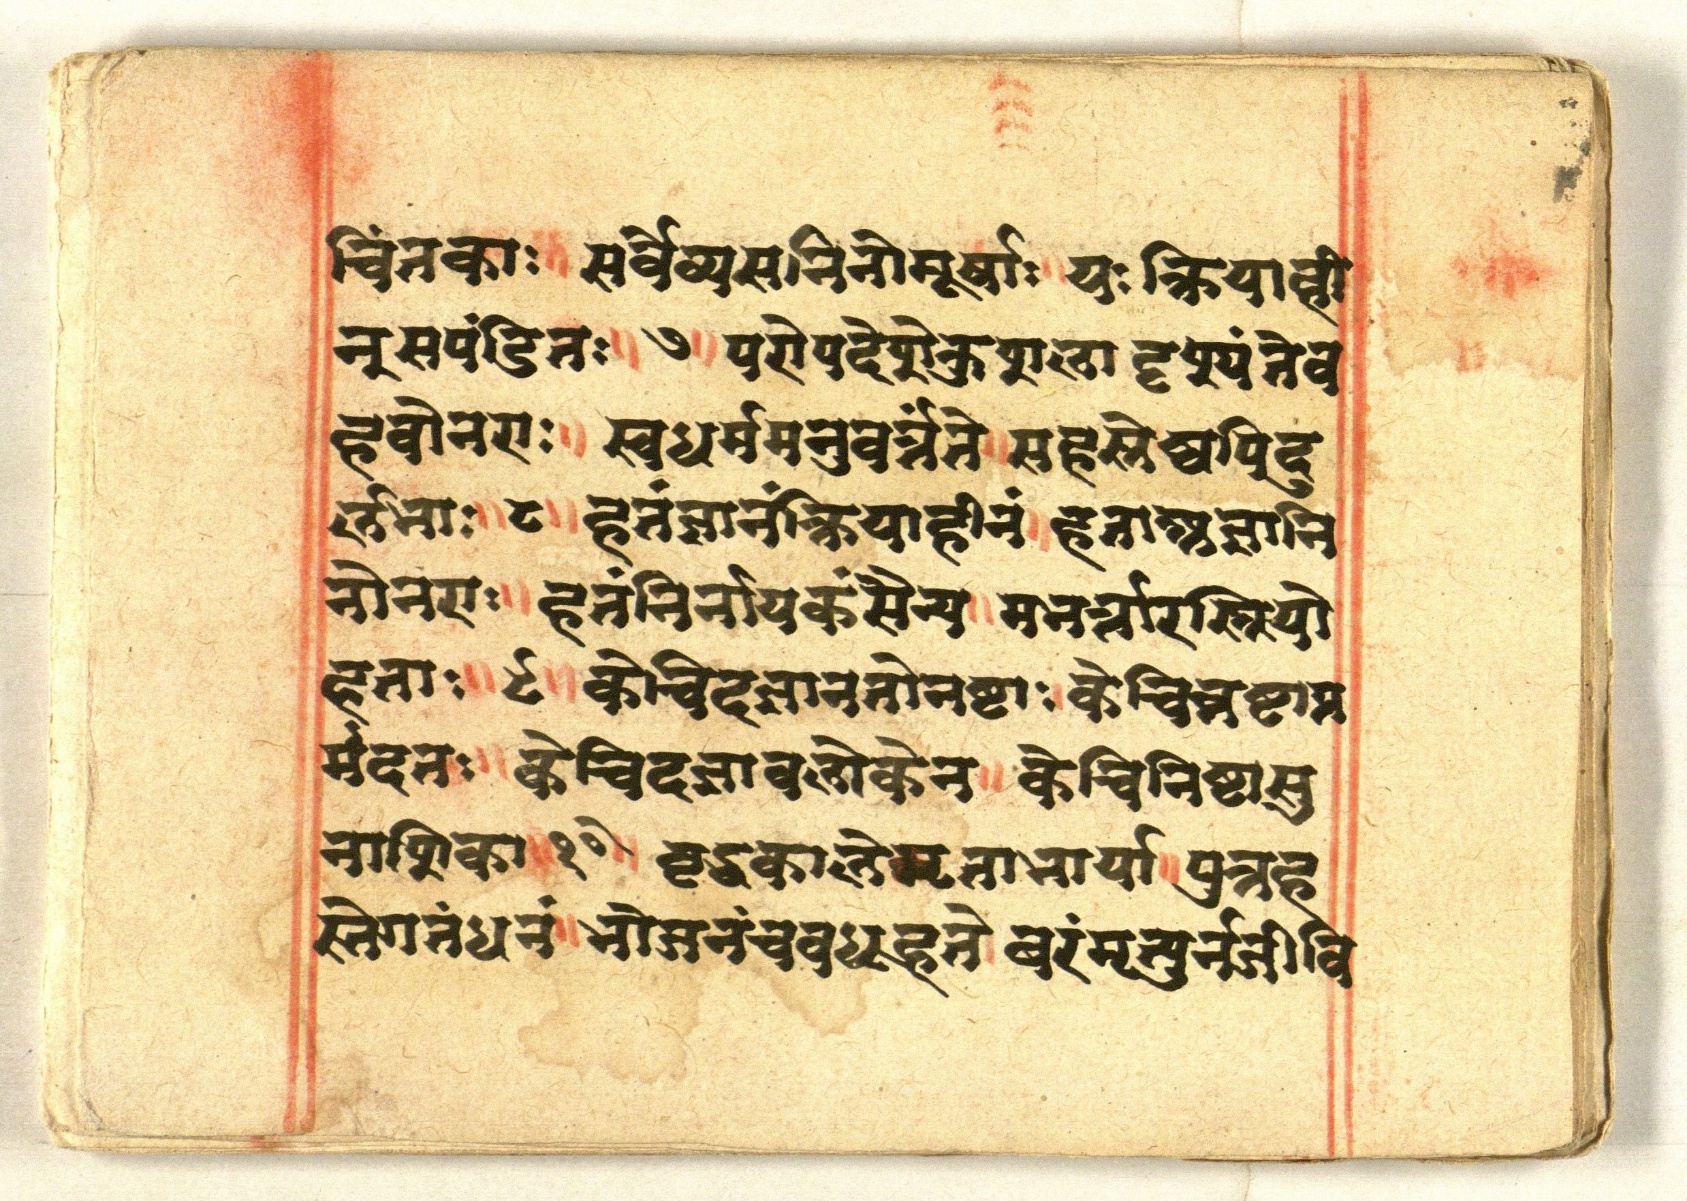 चिंतकाः ॥ सर्वेव्यसनिनोमूर्षाः ॥ यः क्रियावी
नुसपंडितः ॥ ७ ॥ परोपदेशेकुशला दृषुयंतेव
हवोनराः ॥ स्वधर्ममनुवर्त्तंते ॥ सहस्तेष्वपिदु
र्लभाः ॥ ८ ॥ हतंज्ञानंक्रियाहीनं ॥ हताश्चाज्ञानि
नोनराः ॥ हतंनिर्नायकंसैन्य ॥ मभर्त्तारस्त्रियो
हताः ॥ ९ ॥ केचिदज्ञानतोनष्टाः । केचिन्नष्टाप्र
र्मादतः ॥ केचिदज्ञावलोकेन ॥ केचिनिष्टासु
नाशिका ॥ १० ॥ बृद्धकालेमृताभार्या ॥ पुत्रह
स्तेगतंधनं ॥ भोजनंचवधूहस्ते । बरंमृत्युर्नजीवि